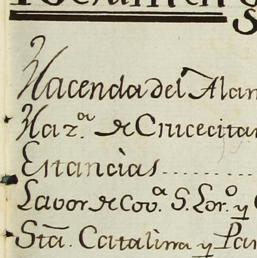 Hacenda del Alam
Haz.ª de Crucecitas
Estancias........
Lavor de Cov.ª S. Lor.º y
Sta. Catalina y Par